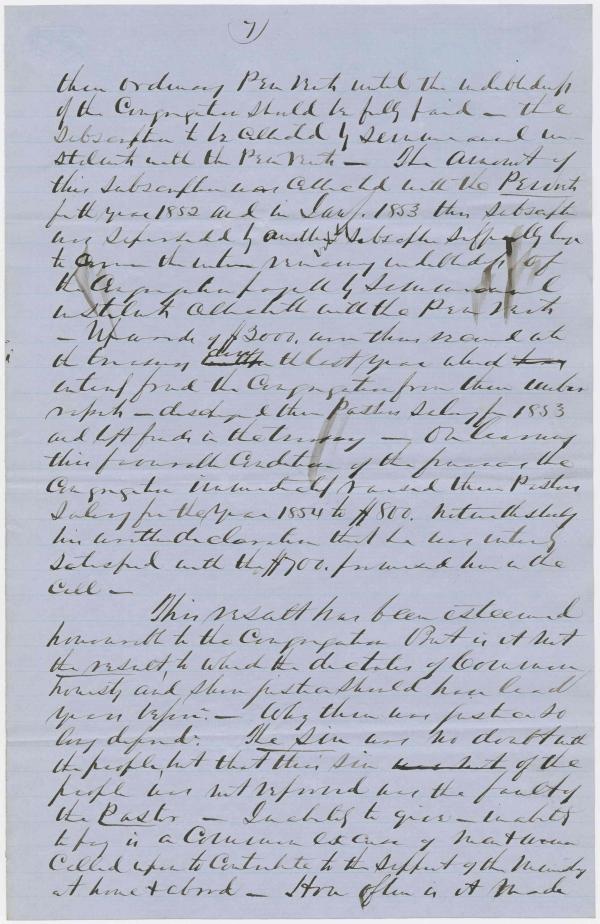 7
their ordinary Pew rents until the indebtedness
of the Congregation should be fully paid — the
Subscription to be Collected by Semi annual in-
stalments with the Pew rents — The Amount of
this Subscription was Collected with the Pewrents
for the year 1852 and in Jany. 1853 this Subscription
was superseded by another Subscription Sufficiently large
to the remaining indebtedness of
the Congregation payable by Semi annual
instalments Collectable with the Pew Rents
— Upwards of $3000. were thus received into
the treasury the last year which
entirely freed the Congregation from their
— discharged their Pastors Salary for 1853
and left funds in the treasury — On learning
this favourable Condition of the finances the
Congregation immediately raised their Pastors
Salary for the Year 1854 to $800. notwithstanding
his written declaration that he was entirely
Satisfied with the $700. promised him in the
Call —
This result has been esteemed
honourable to the Congregation But is it not
the result to which the dictates of Common
honesty and shere justice should have lead
years before. — Why then was justice so
long defered. The Sin was no doubt
the people, but that this sin of the
people was not reproved was the fault of
the Pastor — Inability to give — inability
to pay is a Common excuse of Men & women
Called upon to Contribute to the Support of the Ministry
at home & abroad — How often is it Made